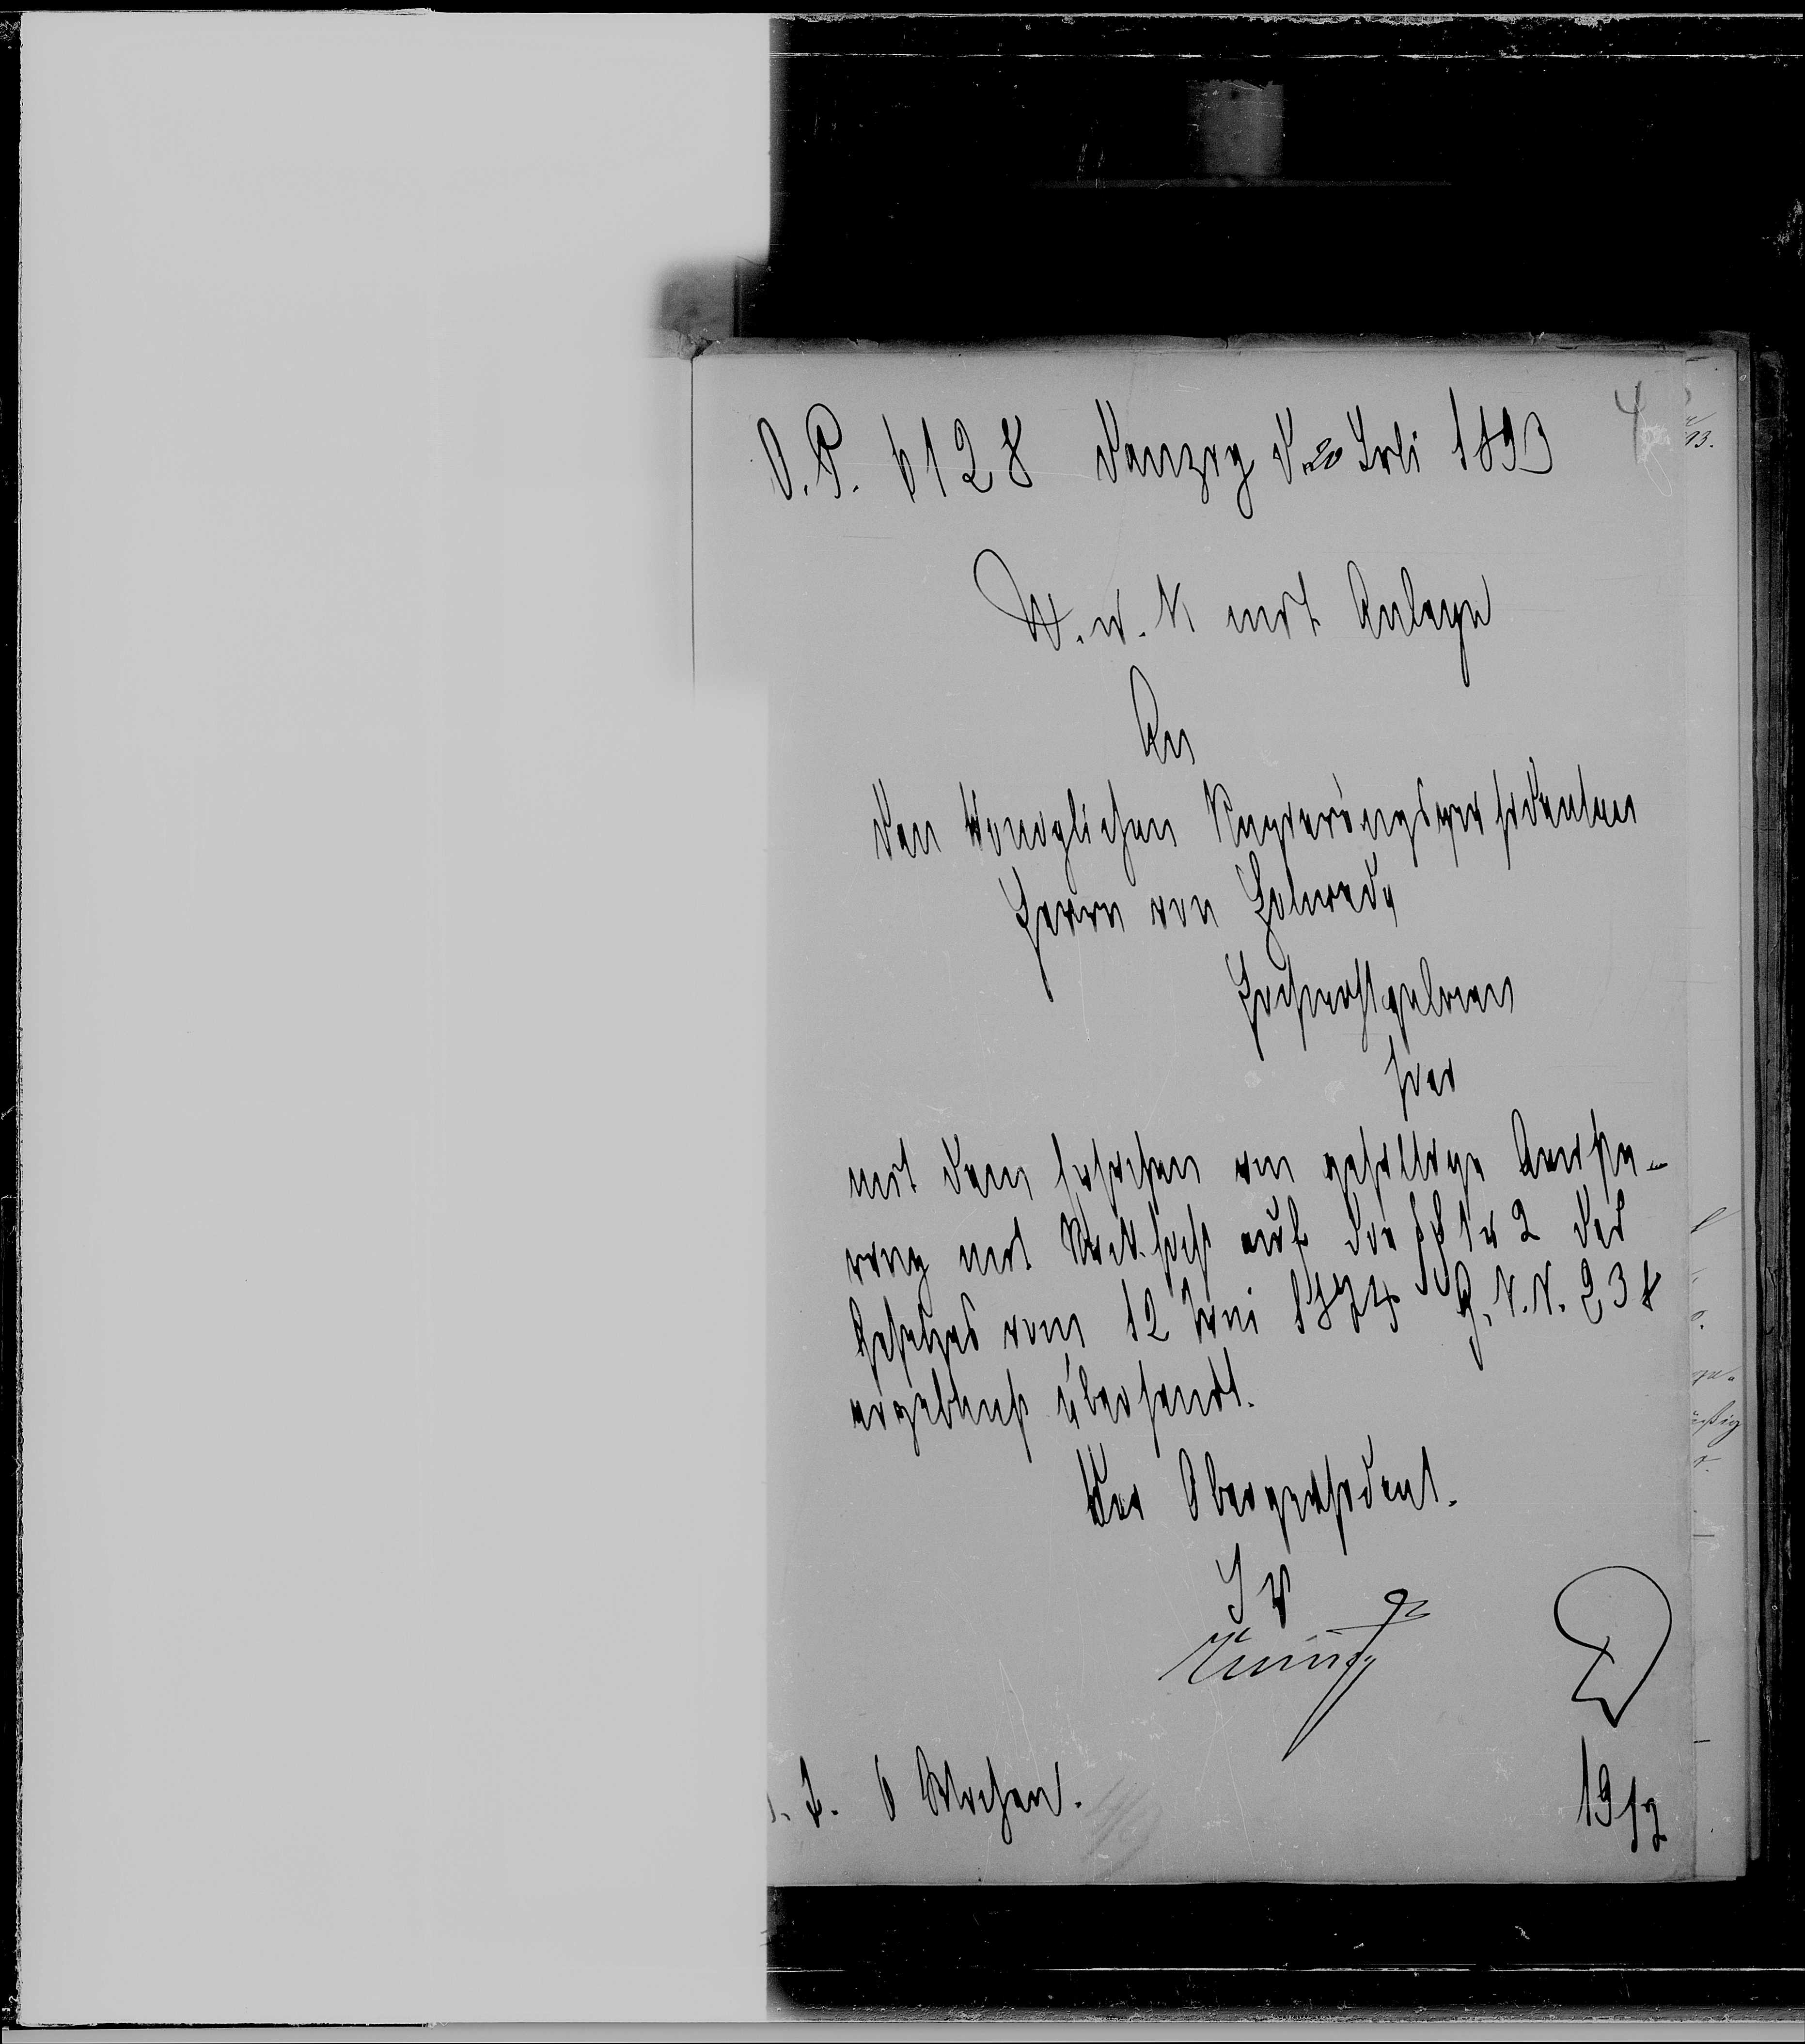 4
O.P. 6128 Danzig d. 20 Juli 1893
U. w. R. mit Anlage
An
den Königlichen Regierungspräsidenten
Herrn von Holwede
Hochwohlgeboren
hier
mit dem Ersuchen um gefällige Aeuße-
rung mit Rücksicht auf die §§ 1 u 2 des
Gesetzes vom 12 Juni 1874 G. S. S. 238
ergebenst übersandt.
Der Oberpräsident.
I V
6 Wochen.
19/7